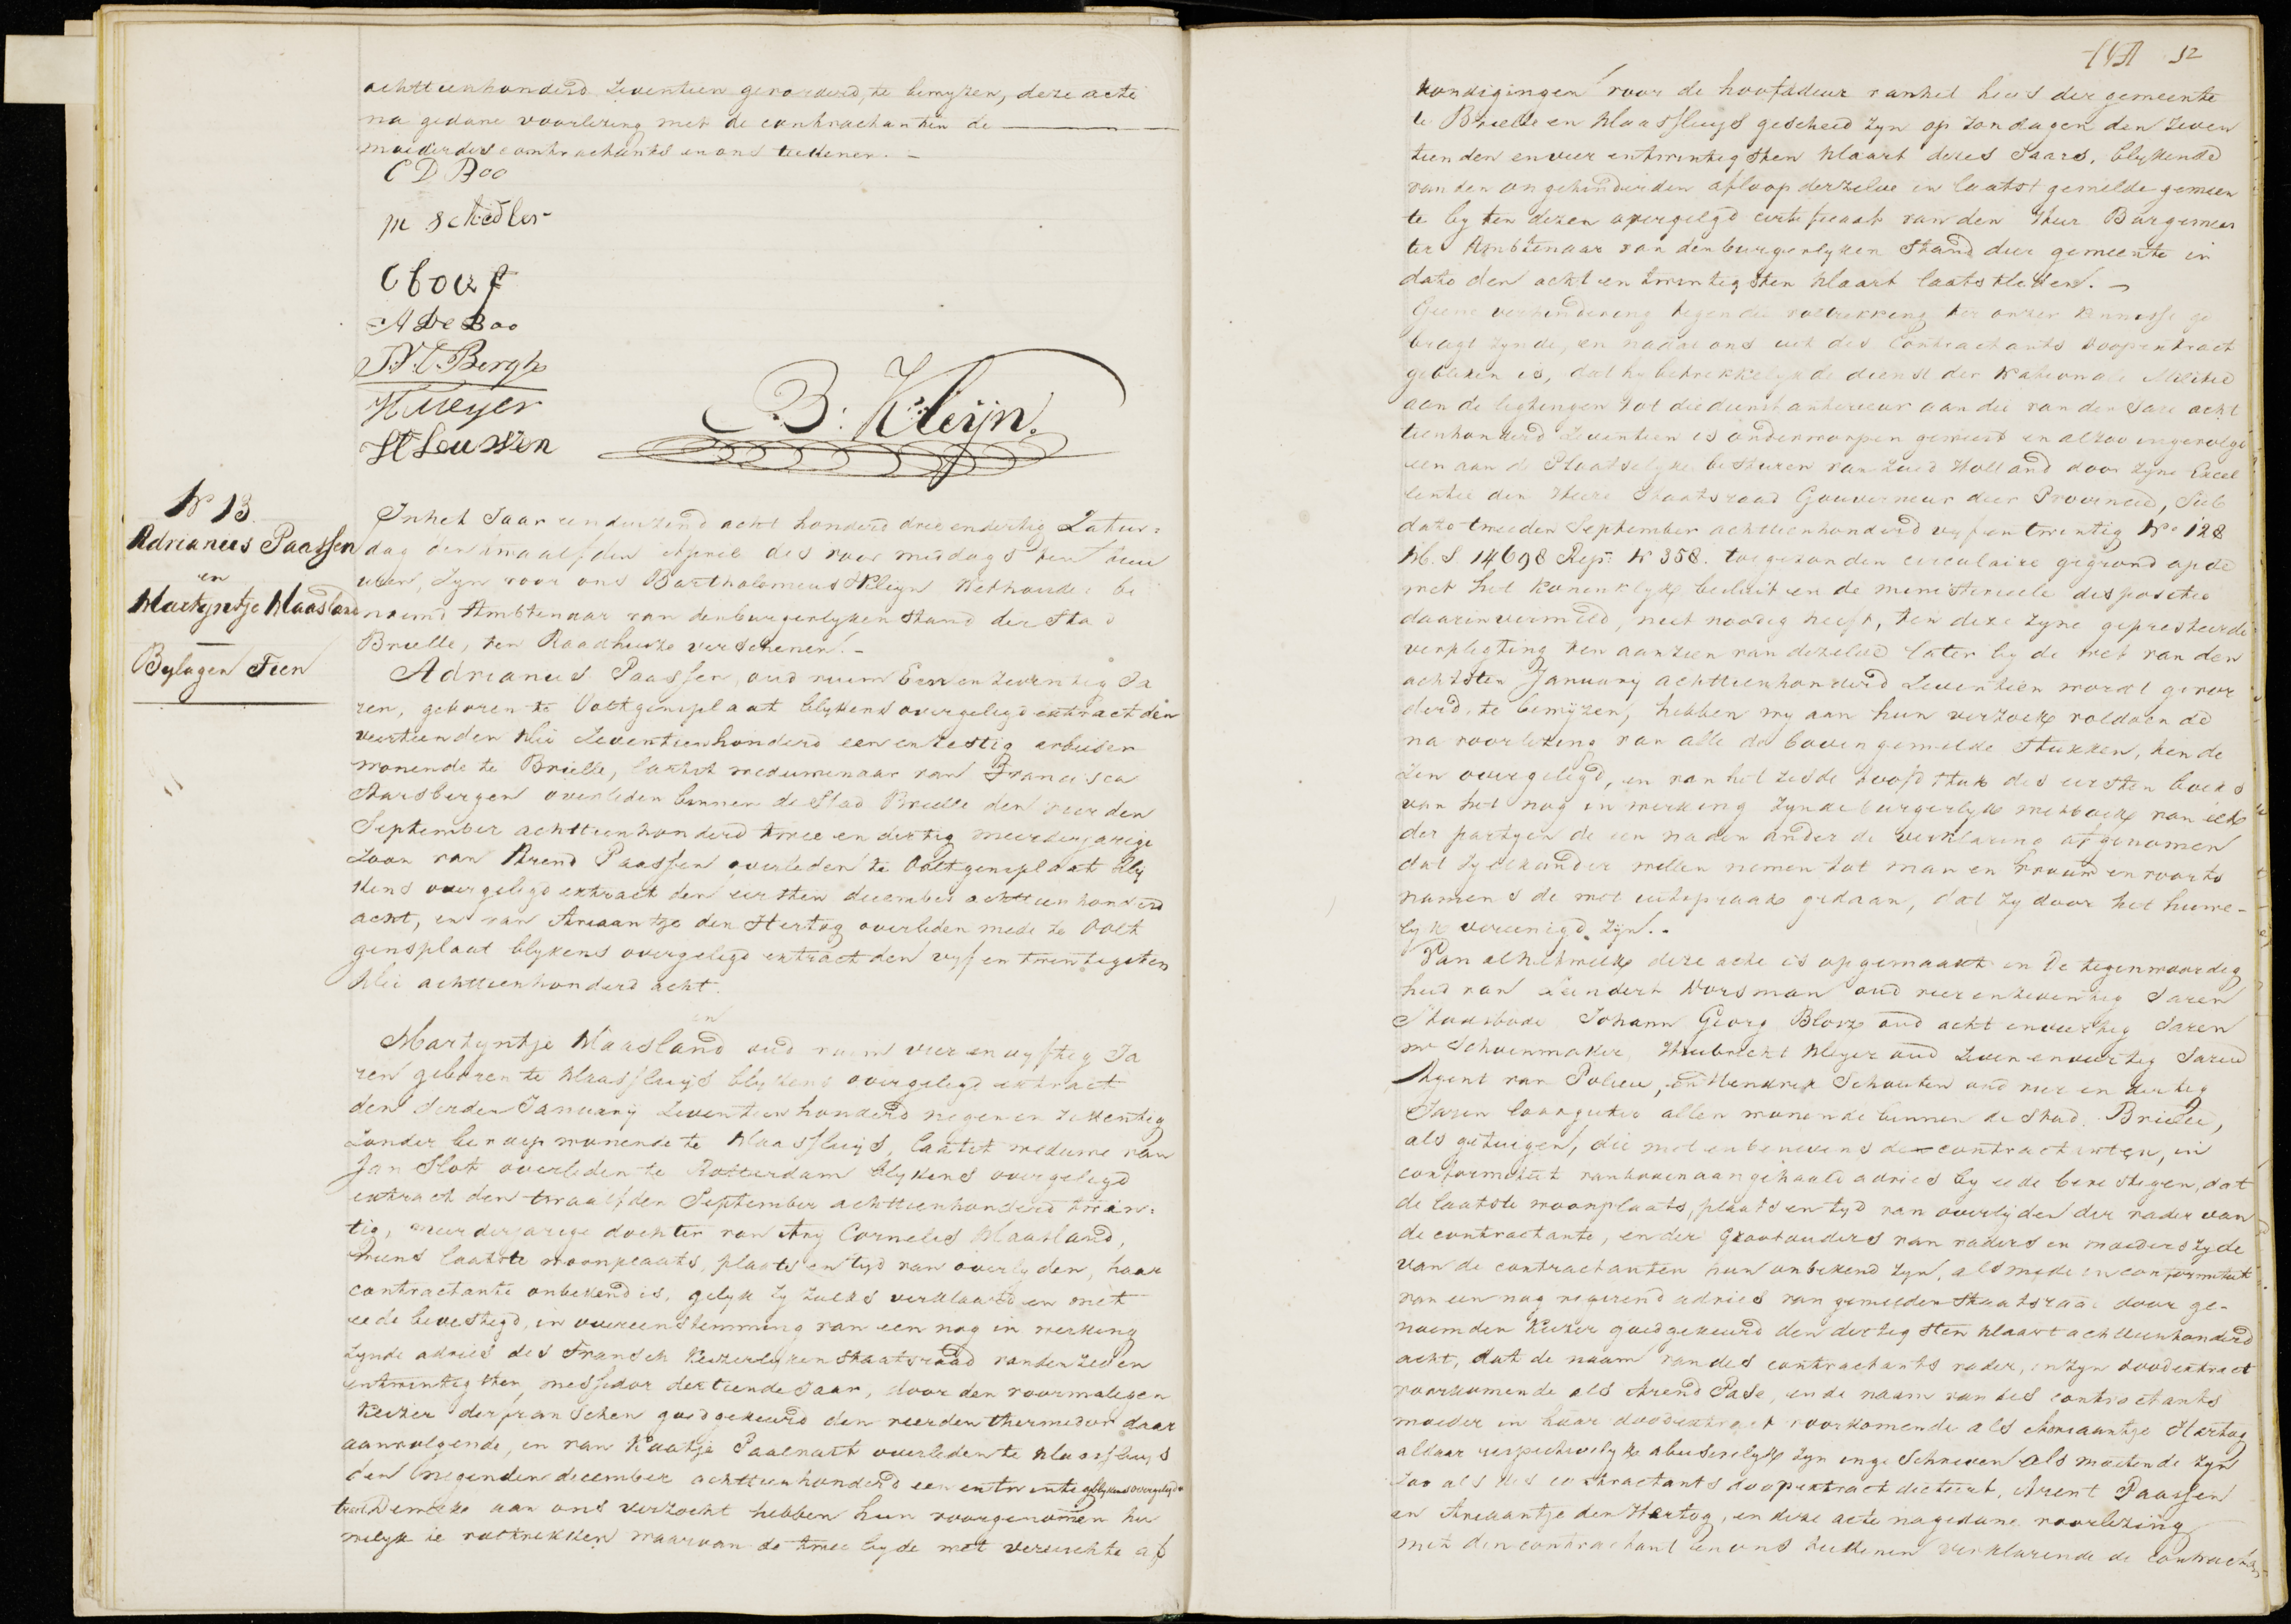 achttienhonderd Zeventien gevorderd, te bewyzen, deze acte
na gedane voorlezing met de contractanten de
moeder des contractants en ons teekenen. –
C D Boo
m schedler
C bouf
A De Boo
H Meyer
H Leussen
B: Kleijn.
N 13.
Adrianus Paassen
en
Martyntje Maasland
Bylagen Tien
In het Jaar een duizend acht honderd drie en dertig Zatur=
dag den twaalfden April des voor middags ten tien
uren, Zyn voor ons Bartholomeus Kleijn Wethouder be
noemd Ambtenaar van den burgerlyken Stand der Stad
Brielle, ten Raadhuize verschenen. –
Adrianus Paassen, oud ruim Een en Zeventig Ja
ren, geboren te Ooltgensplaat blykens overgelegd extract den
veertienden Mei Zeventienhonderd een en zestig arbeider
wonende te Brielle, laatst weduwenaar van Francisca
Aarsbergen overleden binnen de Stad Brielle den vierden
September achttienhonderd twee en dertig meerderjarige
Zoon van Arend Paassen overleden te Ooltgensplaat bly
kens overgelegd extract den eersten december achttienhonderd
acht, en van Ariaantje den Hertog overleden mede te Oolt
gensplaat blykens overgelegd extract den vyf en twintigsten
Mei achttienhonderd acht.
en
Martyntje Maasland oud ruim vier en vyftig Ja
ren geboren te Maassluijs blykens overgelegd extract
den derden January Zeventienhonderd negen en zeventig
Zonder beroep wonende te Maassluijs, laatst weduwe van
Jan Slot overleden te Rotterdam blykens overgelegd
extract den twaalfden September achttienhonderd twin=
tig, meerderjarige dochter van Ary Cornelis Maasland,
wiens laatste woonplaats, plaats en tyd van overlyden, haar
contractante onbekend is, gelyk Zy zulks verklaard en met
eede bevestigd, in overeenstemming van een nog in werking
Zynde advies des Fransch Keizerlyken Staatsraad van den Zeven
entwintigsten messidor dertiende Jaar, door den voormaligen
Keizer der franschen goedgekeurd den vierden thermidor daar
aanvolgende, en van Kaatje Paalvast overleden te Maassluijs
den negenden december achttienhonderd een en twintig blykens overgelegd
extract Dewelke aan ons verzocht hebben hun voorgenomen hu
welyk te voltrekken waarvan de twee by de wet vereischte af
12
kondigingen voor de hoofddeur van het huis der gemeente
te Brielle en Maassluijs geschied zyn op Zondagen den Zeven
tienden en vier entwintigsten Maart dezes Jaars, blykende
van den ongehinderden afloop derzelve in laatst gemelde gemeen
te by ten dezen overgelegd certificaat van den Heer Burgemees
ter Ambtenaar van den burgerlyken Stand dier gemeente in
dato den acht en twintigsten Maart laatstleden. –
Geene verhindering tegen die voltrekking ter onzer kennisse ge
bragt zynde, en nadat ons uit des Contractants doopextract
gebleken is, dat hy betrekkelyk de dienst der Nationale Militie
aan de ligtingen tot die dienst anterieur aan die van den Jare acht
tienhonderd Zeventien is onderworpen geweest en alzoo ingevolge
een aan de Plaatselyke besturen van Zuid Holland door Zyne Excel
lentie den Heere Staatsraad Gouverneur dier Provincie, Sub
dato tweeden September achttienhonderd vyf en twintig No 128
M. S. 14698 Rep: N 358. toegezonden circulaire gegrond op de
met het Koninklyk besluit en de ministerieele dispositie
daarin vermeld, niet noodig heeft, ten deze Zyne gepresteerde
verpligting ten aanzien van dezelve later by de wet van den
achtsten January achttienhonderd Zeventien wordt gevor
derd, te bewyzen, hebben wy aan hun verzoek voldoende
na voorlezing van alle de bovengemelde Stukken, ten de
Zen overgelegd, en van het zesde hoofdstuk des eersten boeks
van het nog in werking zynde burgerlyk wetboek van elk
der partyen de een na den ander de verklaring afgenomen
dat zy elkander willen nemen tot man en vrouw en voorts
namens de wet uitspraak gedaan, dat Zy door het huwe-
lyk vereenigd Zyn. –
Van al hetwelk deze acte is opgemaakt in de tegenwoordig
heid van Leendert Vorsman oud vier en zeventig Jaren
Stadsbode Johann Georg Blosz oud acht en veertig Jaren
Schoenmaker, Huibrecht Meyer oud Zeven en veertig Jaren
Agent van Policie, en Hendrik Schouten oud vier en dertig
Jaren allen wonende binnen de Stad Brielle,
als getuigen, die met en benevens de contractanten, in
conformiteit van bovenaangehaald advies by eede bevestigen, dat
de laatste woonplaats, plaats en tyd van overlyden der vader van
de contractante, en der Grootouders van vaders en moeders zyde
van de contractanten hun onbekend Zyn, als mede in conformiteit
van een nog vigerend advies van gemelden Staatsraad door ge-
noemden Keizer goedgekeurd den dertigsten Maart achttienhonderd
acht, dat de naam van des contractants vader, in zyn doodextract
voorkomende als Arend Pase, en de naam van des contractants
moeder in haar doodextract voorkomende als Ariaantje Hertog
aldaar respectivelyk abusivelyk zyn ingeschreven als moetende zyn
Zoo als des contractants doopextract dicteert, Arent Paassen
en Ariaantje den Hertog, en deze acte na gedane voorlezing
met den contractant en ons teekenen verklarende de contractante